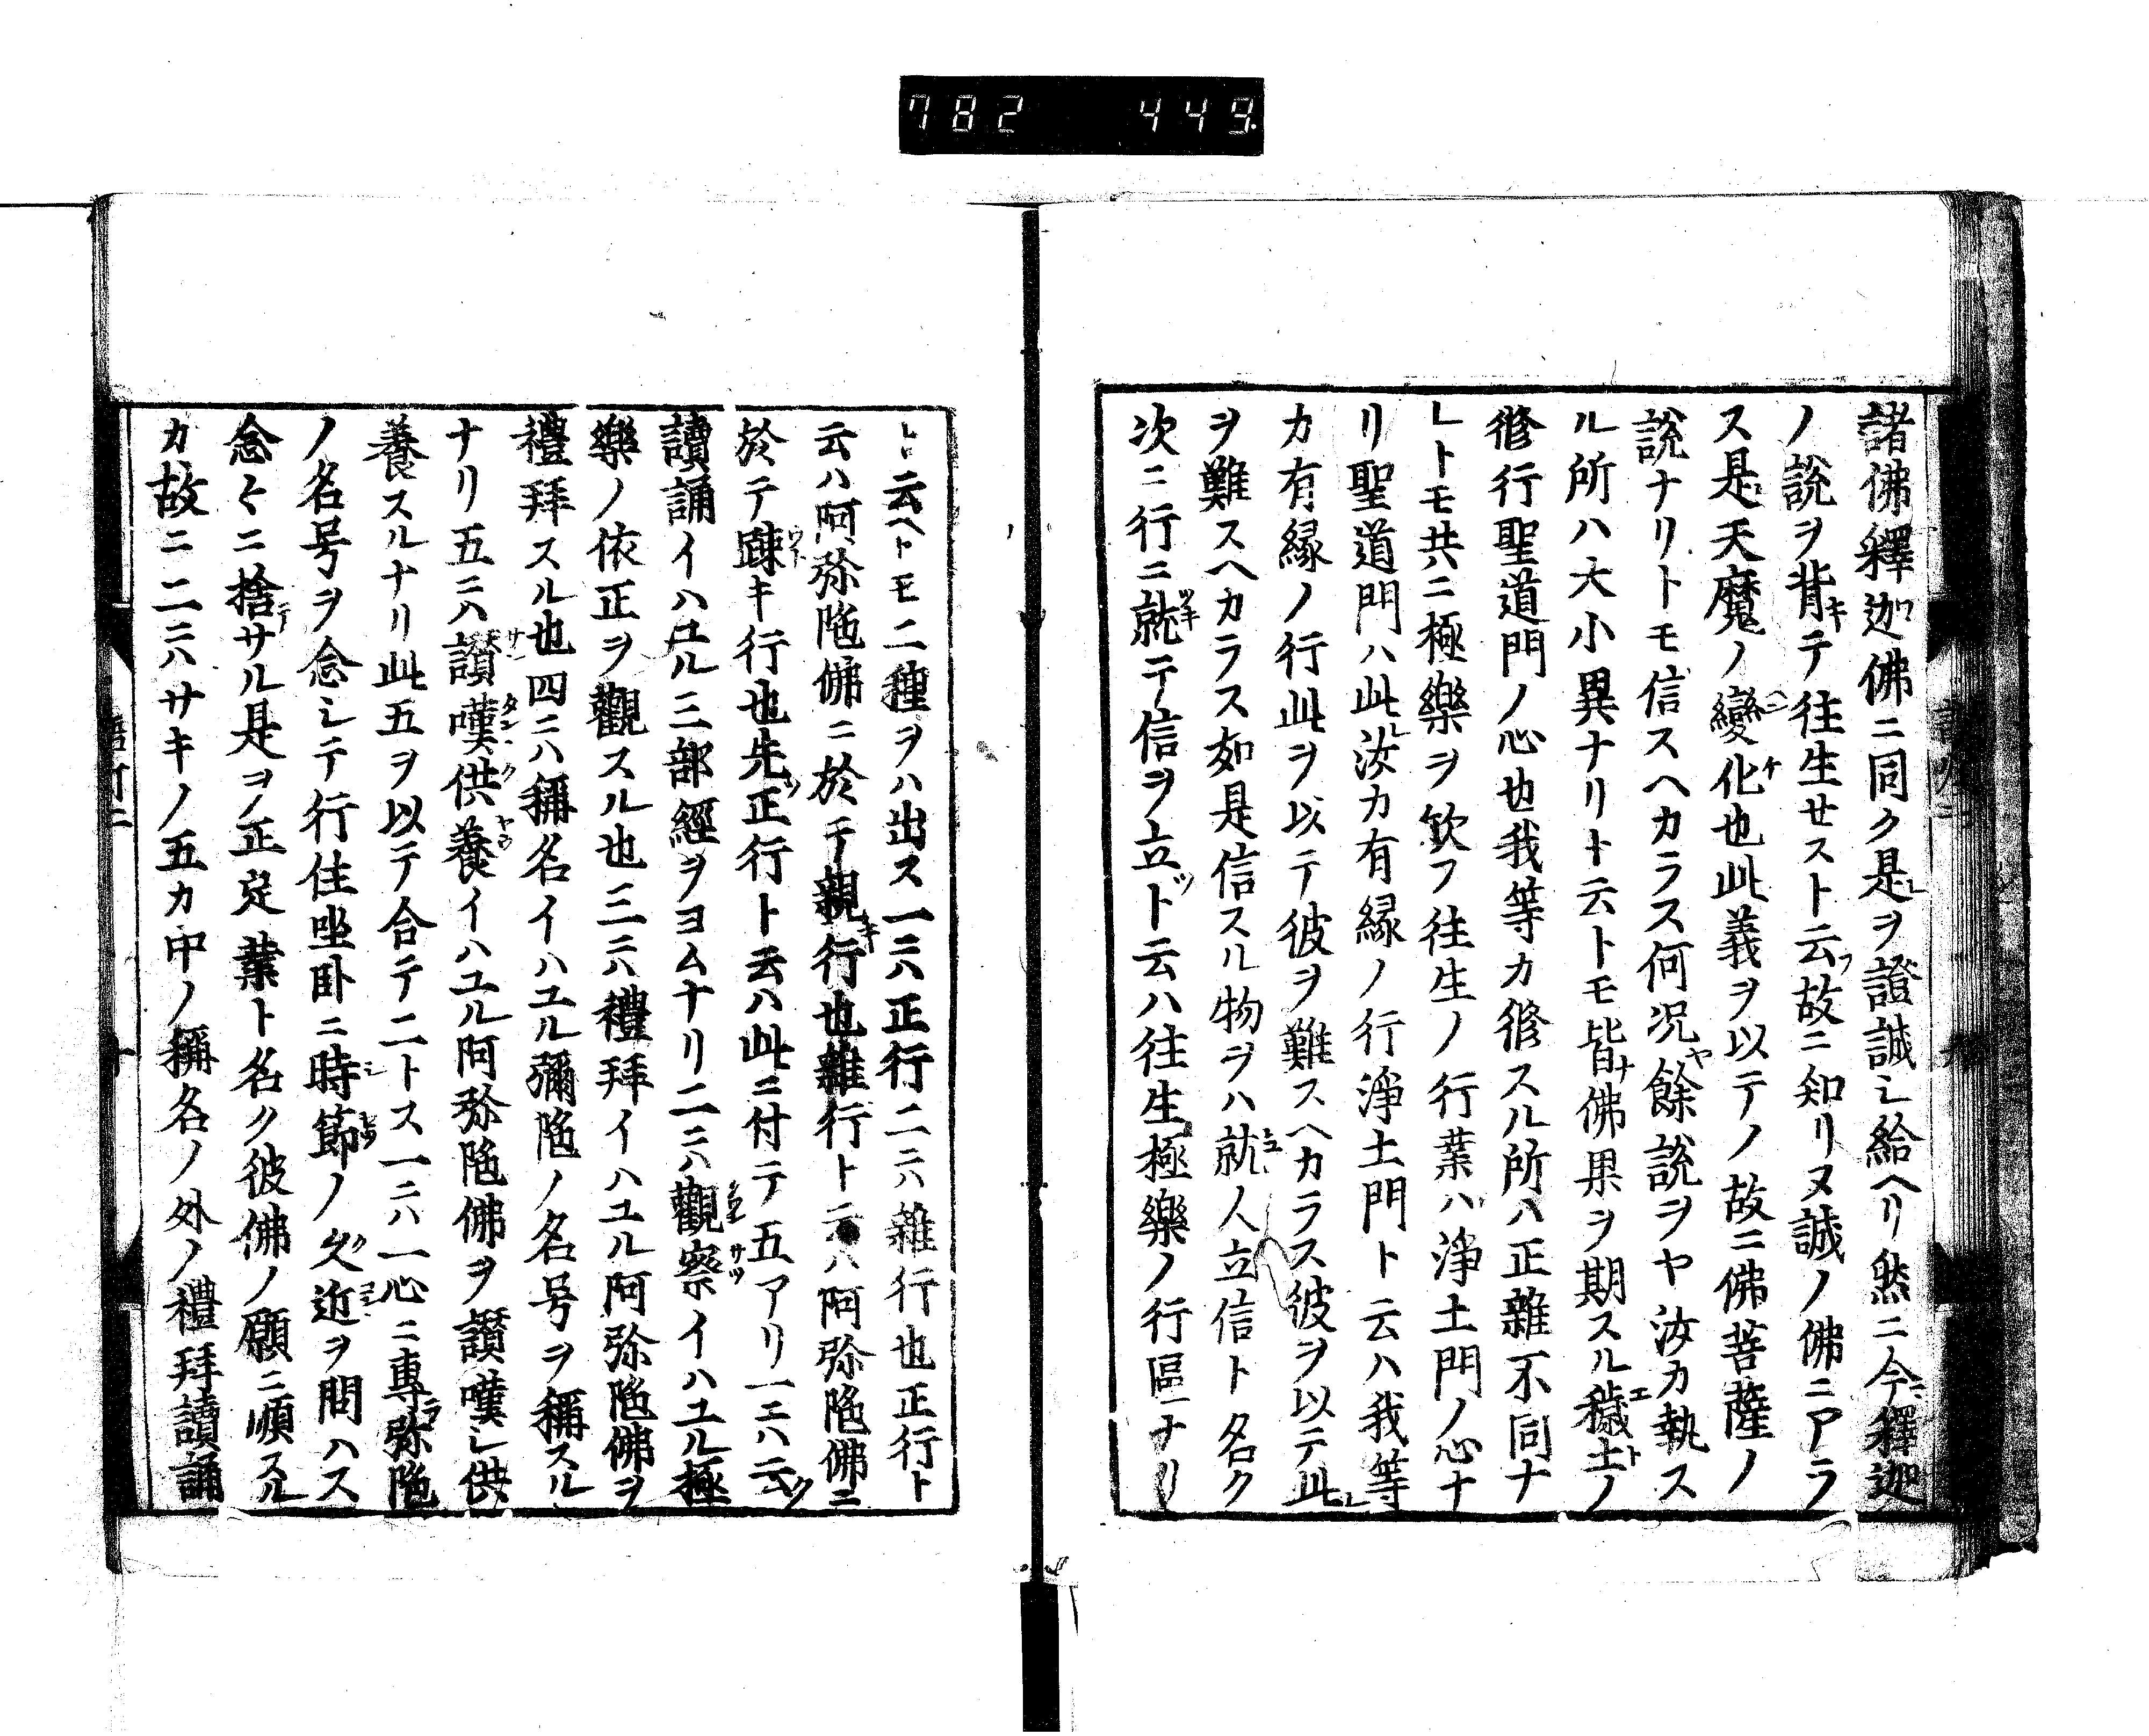 782 449
諸佛釋迦佛ニ同ク是ヲ證誠シ給ヘリ然ニ今釋迦
ノ說ヲ背テ往生セスト云故ニ知リヌ誠ノ佛ニアラ
ス是天魔ノ變化也此義ヲ以テノ故ニ佛菩薩ノ
說ナリトモ信スヘカラス何况餘說ヲヤ汝カ執ス
ル所ハ大小異ナリト云トモ皆佛果ヲ期スル穢土ノ
修行聖道門ノ心也我等カ修スル所ハ正雜不同ナ
レトモ共ニ極樂ヲ欽フ往生ノ行業ハ淨土門ノ心ナ
リ聖道門ハ此汝カ有縁ノ行淨土門ト云ハ我等
カ有縁ノ行此ヲ以テ彼ヲ難スヘカラス彼ヲ以テ此
ヲ難スヘカラス如是信スル物ヲハ就人立信ト名ク
次ニ行ニ就テ信ヲ立ト云ハ往生極樂ノ行區ナリ
ト云ヘトモ二種ヲハ出ス一ニハ正行二ニハ雜行也正行ト
云ハ阿弥陁佛ニ於テ親行也雜行ト云ハ阿弥陁佛ニ
於テ踈キ行也先正行ト云ハ此ニ付テ五アリ一ニハ云
讀誦イハユル三部經ヲヨムナリ二ニハ觀察イハユル極
樂ノ依正ヲ觀スル也三ニハ禮拜イハユル阿弥陁佛ヲ
禮拜スル也四ニハ稱名イハユル彌陁ノ名号ヲ稱スル
ナリ五ニハ讃嘆供養イハユル阿弥陁佛ヲ讃嘆シ供
養スルナリ此五ヲ以テ合テ二トス一ニハ一心ニ專弥陁
ノ名号ヲ念シテ行住坐卧ニ時節ノ久近ヲ問ハス
念々ニ捨サル是ヲノ正定業ト名ク彼佛ノ願ニ順スル
カ故ニ二ニハサキノ五カ中ノ稱名ノ外ノ禮拜讀誦